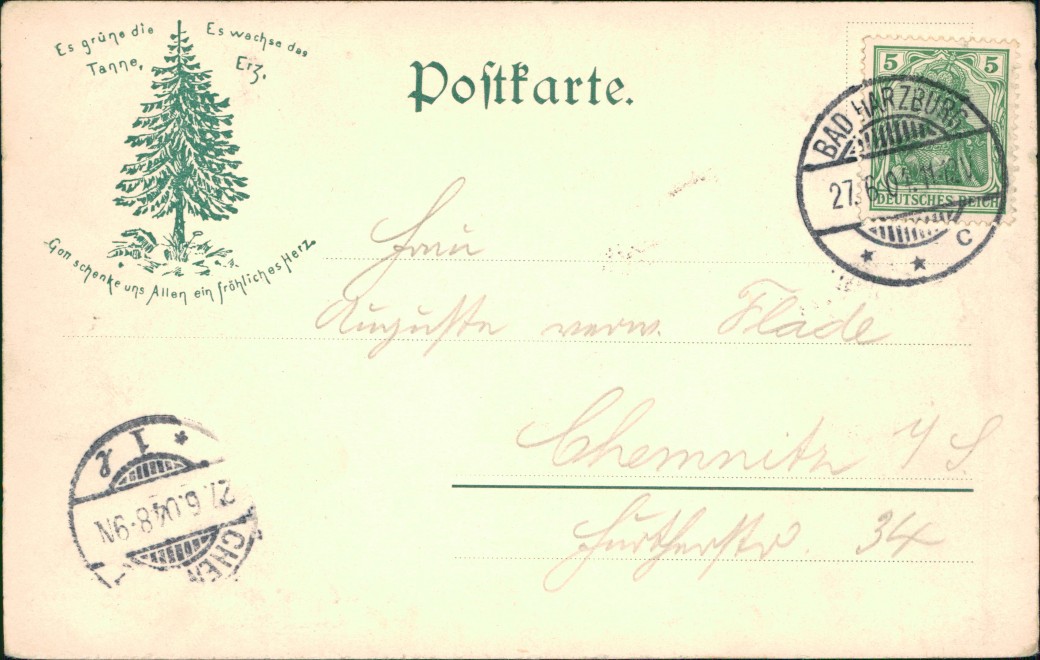 Es grüne die
Tanne,
Es wachse das
Erz,
Gott schenke uns Allen ein fröhliches Herz.
Postkarte.
5 5
DEUTSCHES REICH
BAD HARZBURG
27.6.04. 11-12V.
* * c
Frau
Auguste verw. Flade
Chemnitz i/S.
Fürtherstr. 34
* 1
27.6.04.8-9N
CHEM